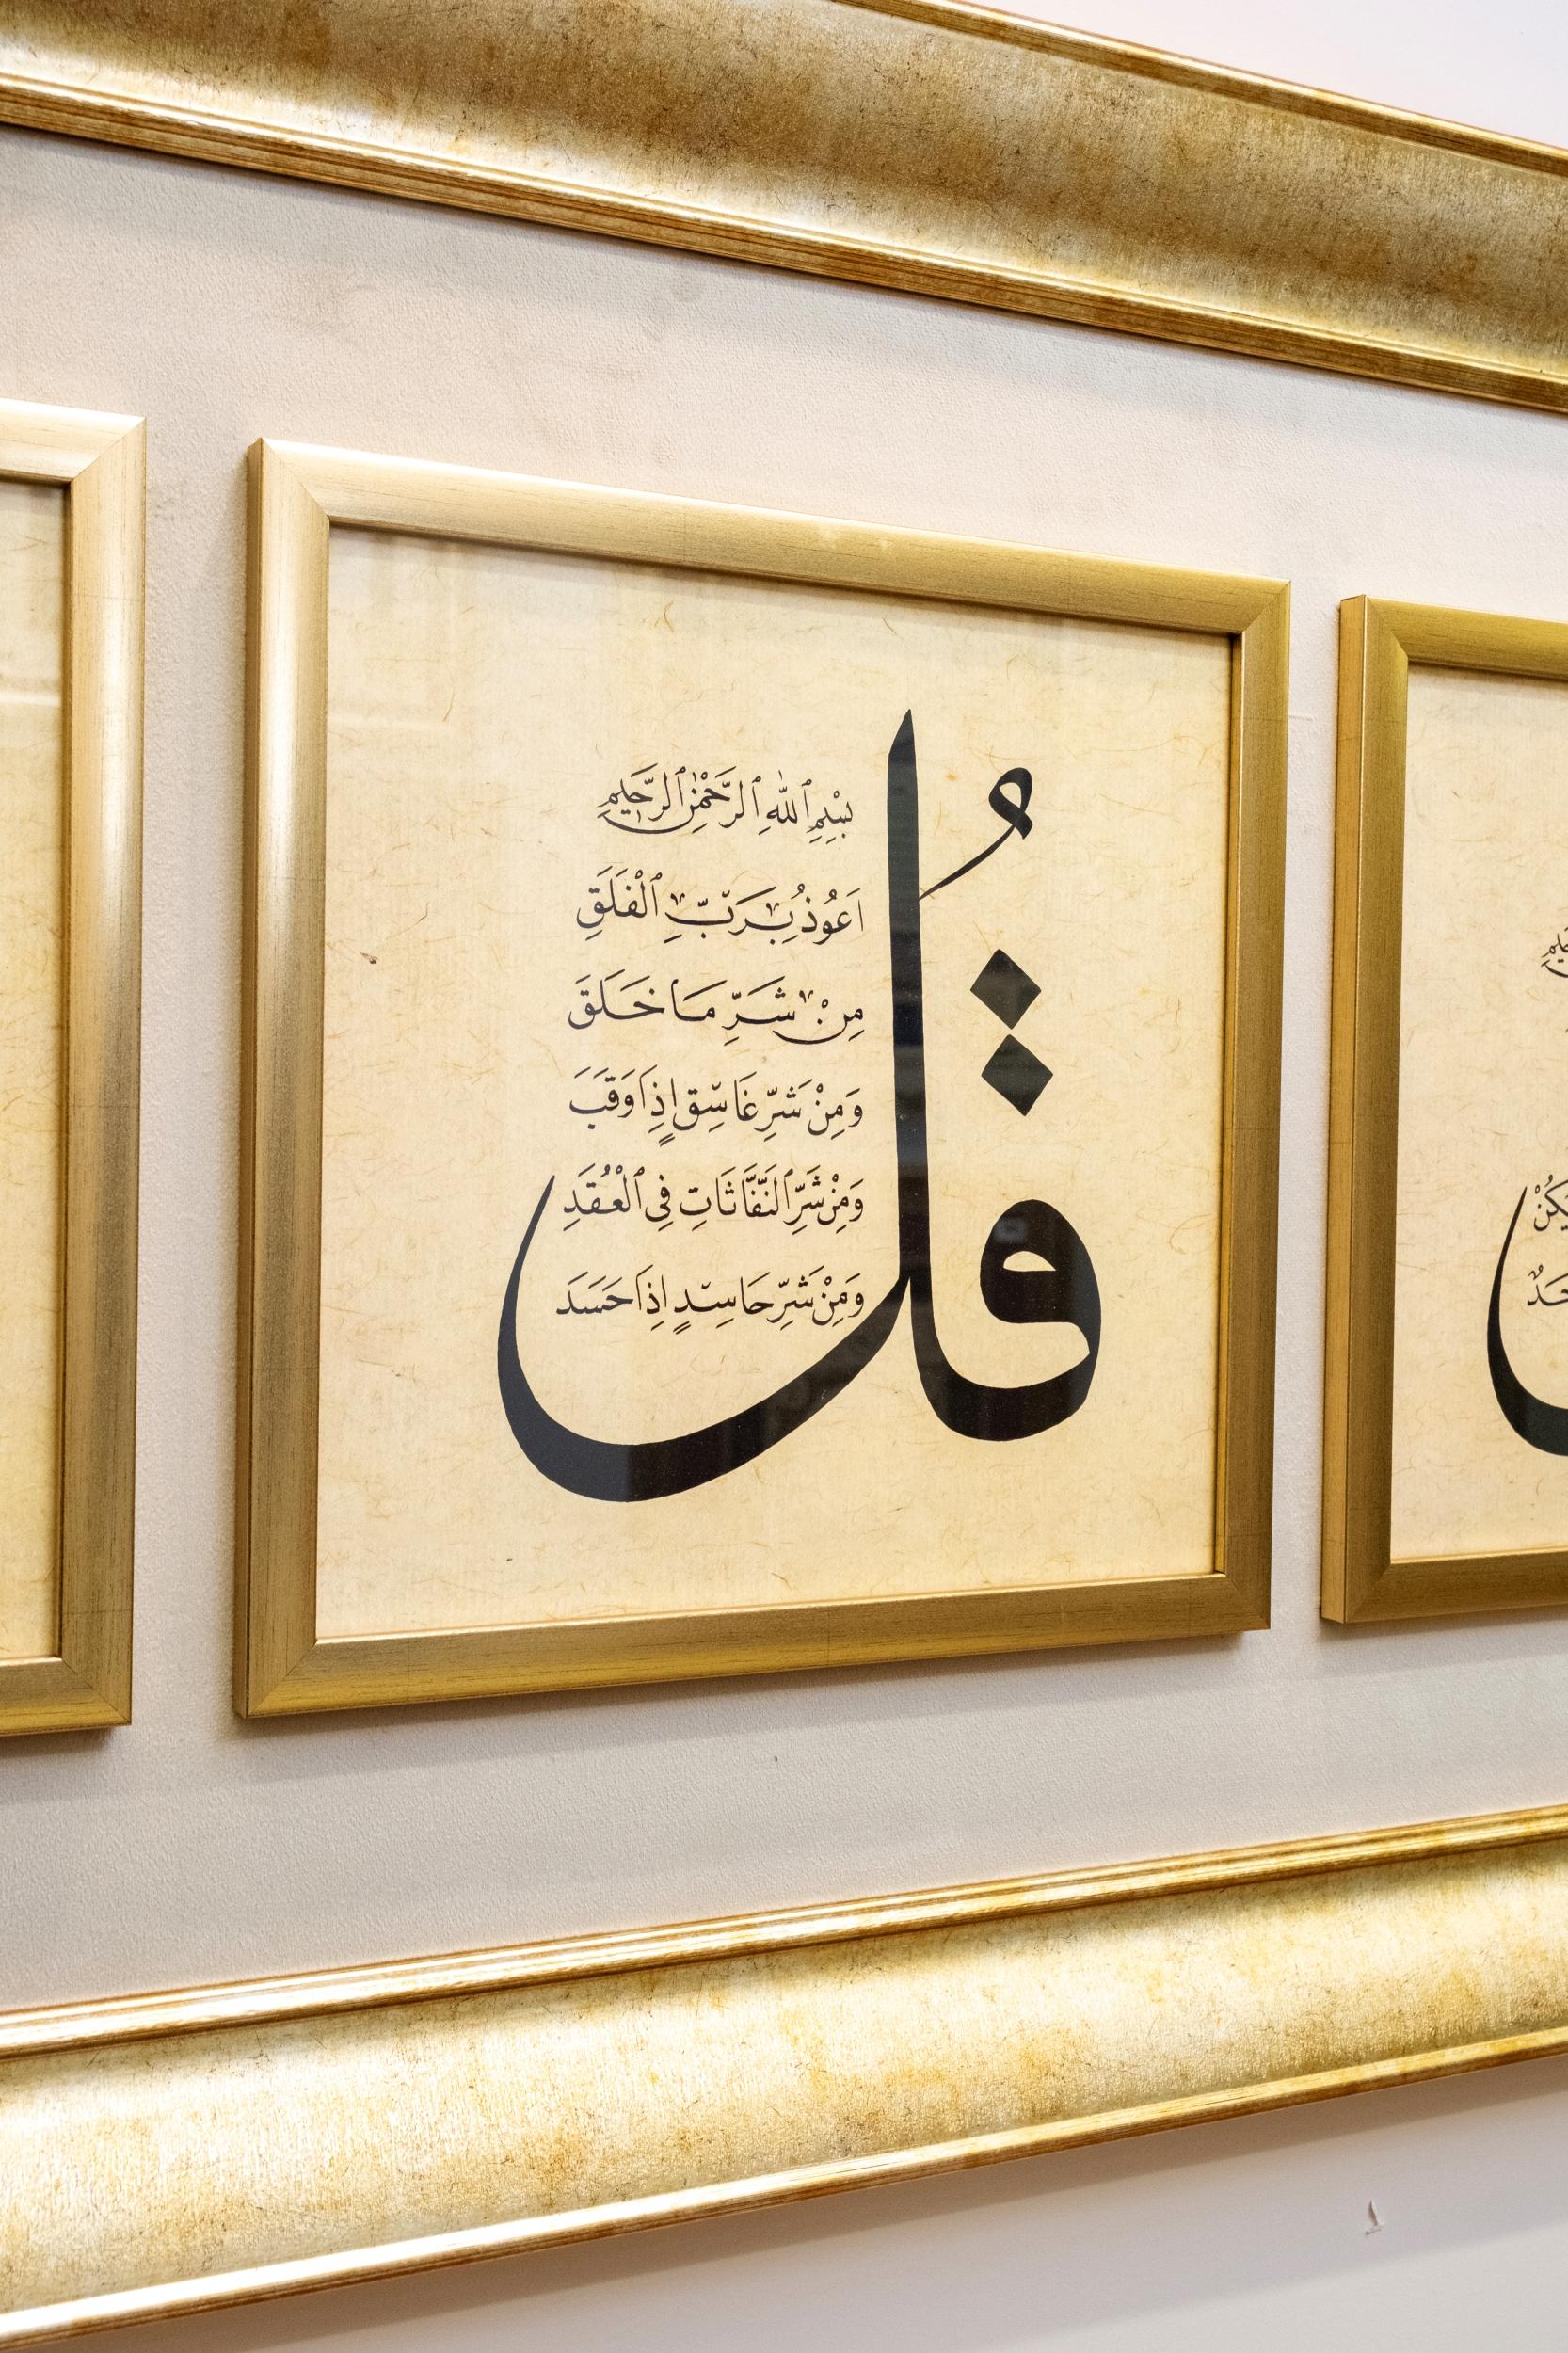 قُل
بِسْمِ ٱللهِ ٱلرَّحْمٰنِ ٱلرَّحِيمِ
اَعُوذُ بِرَبِّ ٱلْفَلَقِ
مِنْ شَرِّ مَا خَلَقَ
وَمِنْ شَرِّ غَاسِقٍ اِذَا وَقَبَ
وَمِنْ شَرِّ ٱلنَّفَّاثَاتِ فِي ٱلْعُقَدِ
وَمِنْ شَرِّ حَاسِدٍ اِذَا حَسَدَ